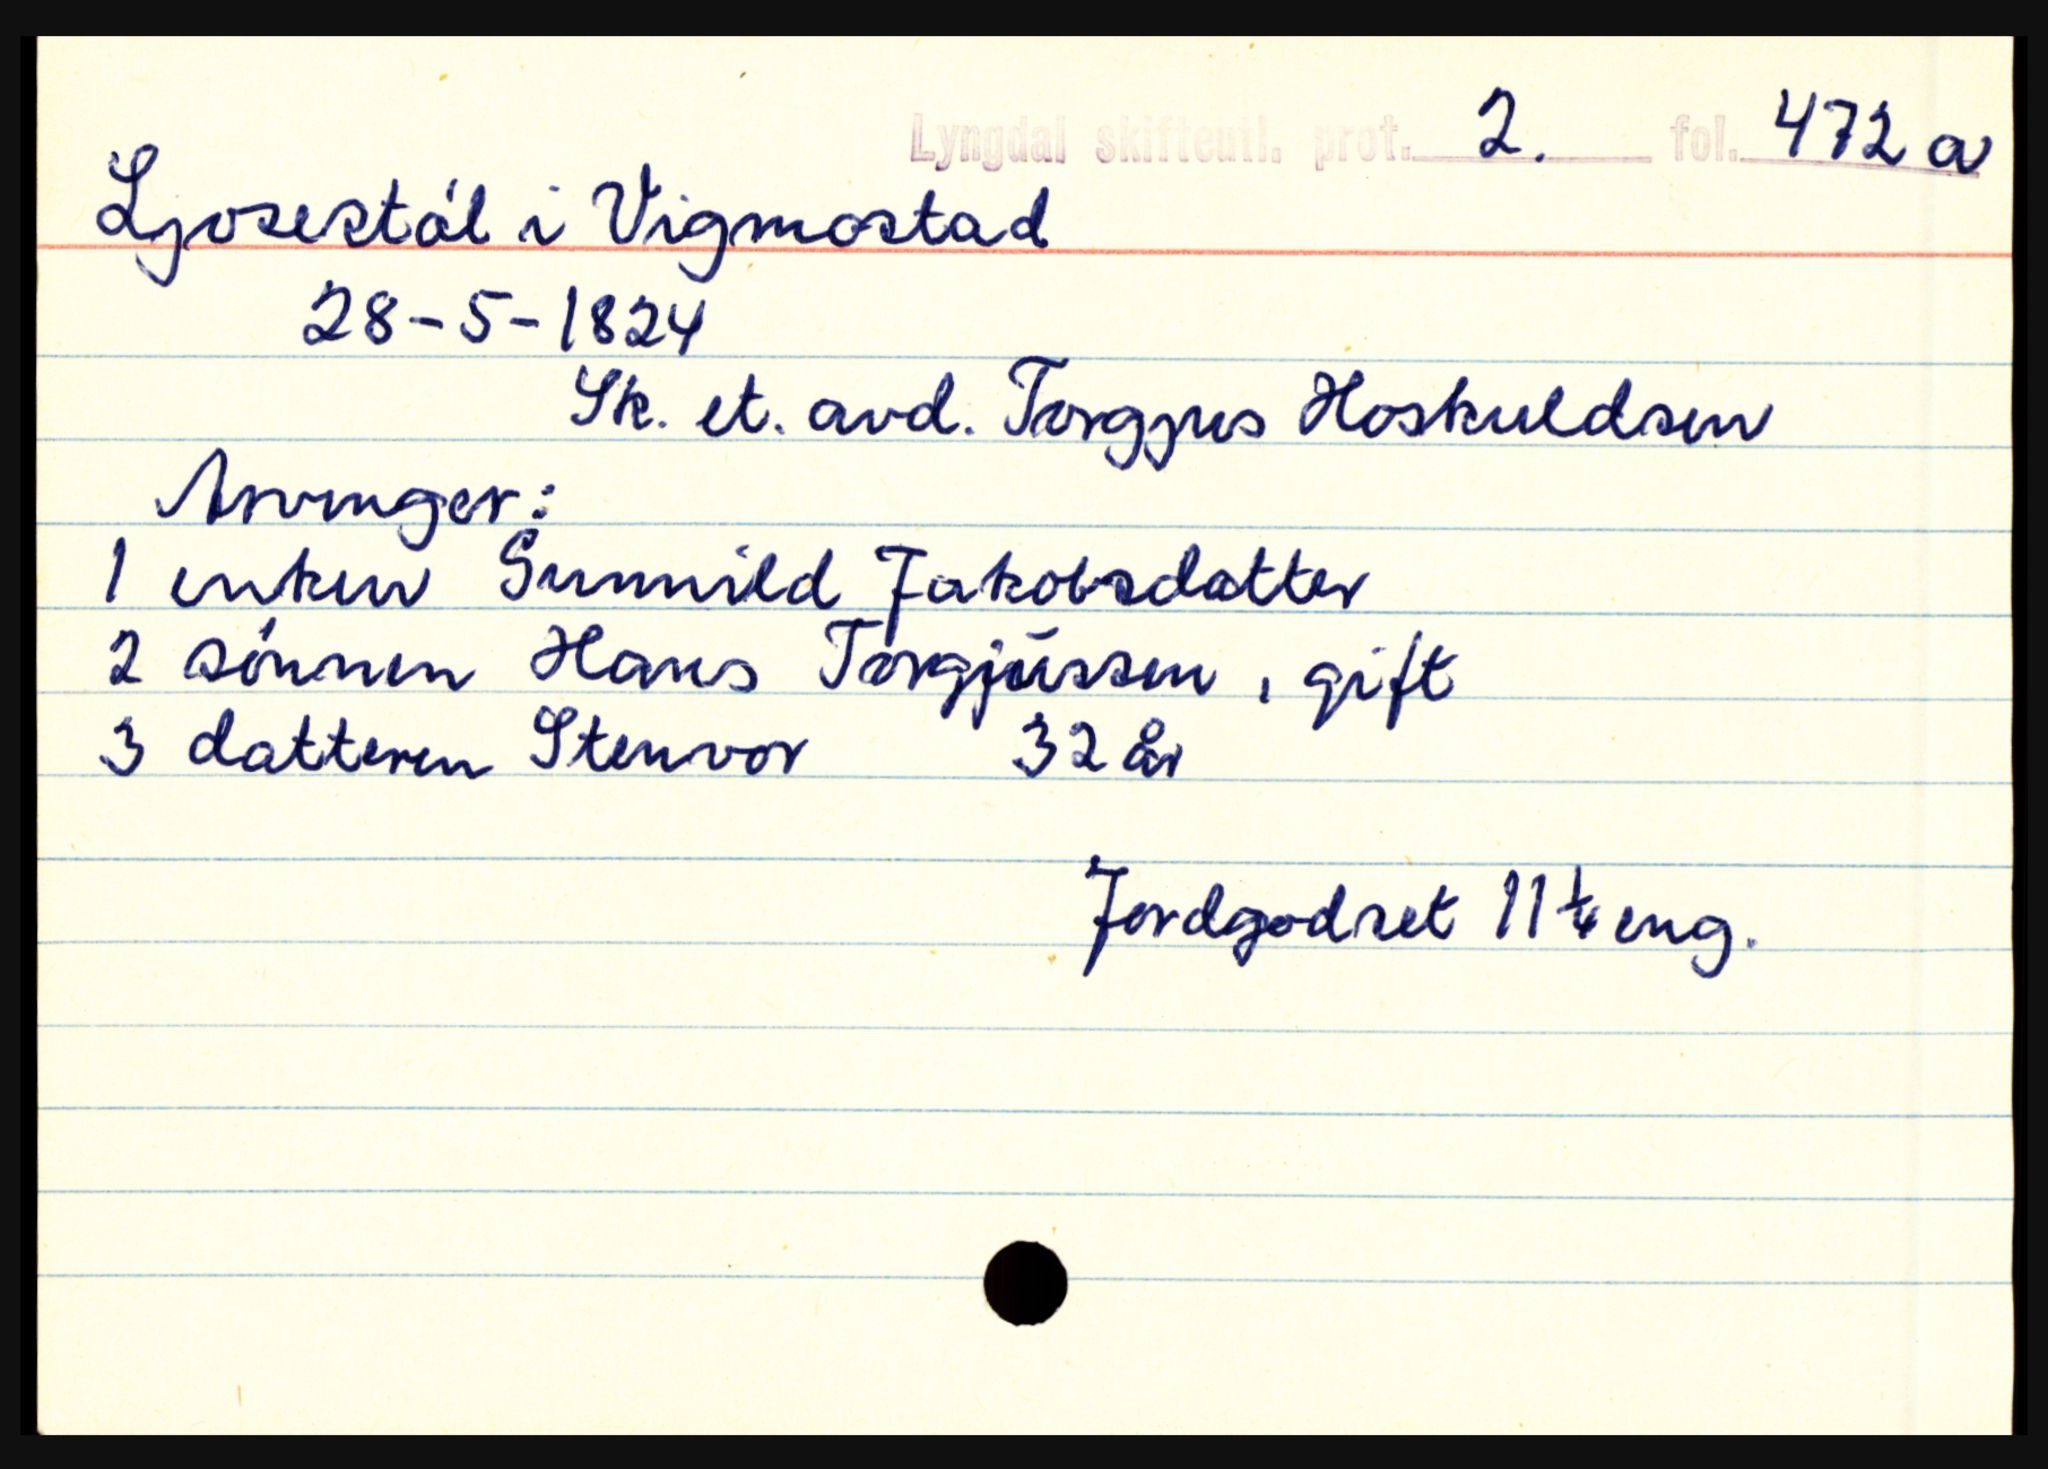 Lyngdal skifteutl. prot. 2. fol. 472 a
Ljosestål i Vigmostad
28-5-1824
Sk. et. avd. Torgjus Hoskuldsen
Arvinger:
1 enken Gunnild Jakobsdatter
2 sónnen Hans Torgjussen, gift
3 datteren Stenvor 32 år
Jordgodset 11 1/4 eng.